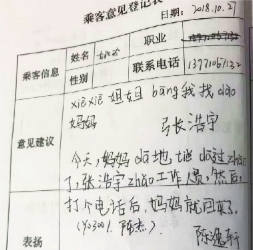 乘客意见登记表
日期: 2018.10.27
乘客信息
姓名
职业
性别
联系电话
意见建议
xiè xiè 姐姐 bāng 我 找 dào
妈妈
张浩宇
今天, 妈妈 dā 地 tiě
了, 张浩宇 zhǎo 工作人员, 然后,
打个电话后, 妈妈就回来了.
表扬